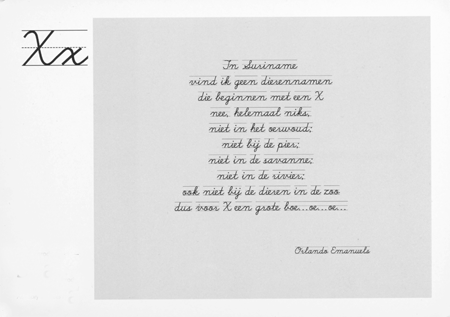 Xx
In Suriname
vind ik geen dierennamen
die beginnen met een X
nee, helemaal niks,
niet in het oerwoud;
niet bij de pier;
niet in de savanne;
niet in de rivier;
ook niet bij de dieren in de zoo
dus voor X een grote boe...oe...oe...
Orlando Emanuels